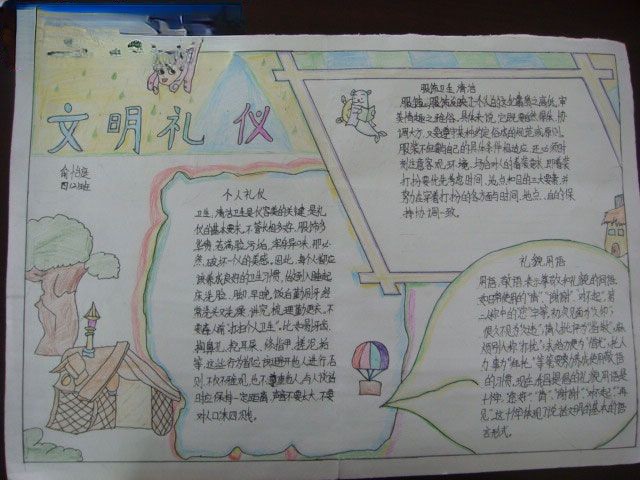 文明礼仪
俞怡笙
四(2)班
个人礼仪
卫生:清洁卫生是仪容美的关键,是礼
仪的基本要求。不管长相多好,服饰多
华贵,若满脸污垢,浑身异味,那必
然破坏一个人的美感。因此,每个人都应
该养成良好的卫生习惯,做到入睡起
床洗脸、脚,早晚、饭后勤刷牙,经
常洗头又洗澡,讲究梳理勤更衣。不
要在人前"打扫个人卫生"。比如剔牙齿、
掏鼻孔、挖耳屎、修指甲、搓泥垢
等,这些行为都应该避开他人进行,否
则,不仅不雅观,也不尊重他人。与人谈话
时应保持一定距离,声音不要太大,不要
对人口沫四溅。
服饰卫生清洁
服饰:服饰反映了一个人的文化素质之高低,审
美情趣之雅俗。具体来说,它既要自然得体,协
调大方,又要遵守某种约定俗成的规范或原则。
服装不但要与自己的具体条件相适应,还必须时
刻注意客观环境、场合对人的着装要求,即着装
打扮要优先考虑时间、地点和目的三大要素,并
努力在穿着打扮的各方面与时间、地点、目的保
持协调一致。
礼貌用语
用语:敬语,表示尊敬和礼貌的词语。
如日常使用的"请"、"谢谢"、"对不起",第
二人称中的"您"字等。初次见面为"久仰";
很久不见为"久违";请人批评为"指教";麻
烦别人称"打扰";求给方便为"借光";托人
办事为"拜托"等等。要努力养成使用敬语
的习惯。现在,我国提倡的礼貌用语是
十个字:"您好"、"请"、"谢谢"、"对不起"、"再
见"。这十个字体现了说话文明的基本的语
言形式。